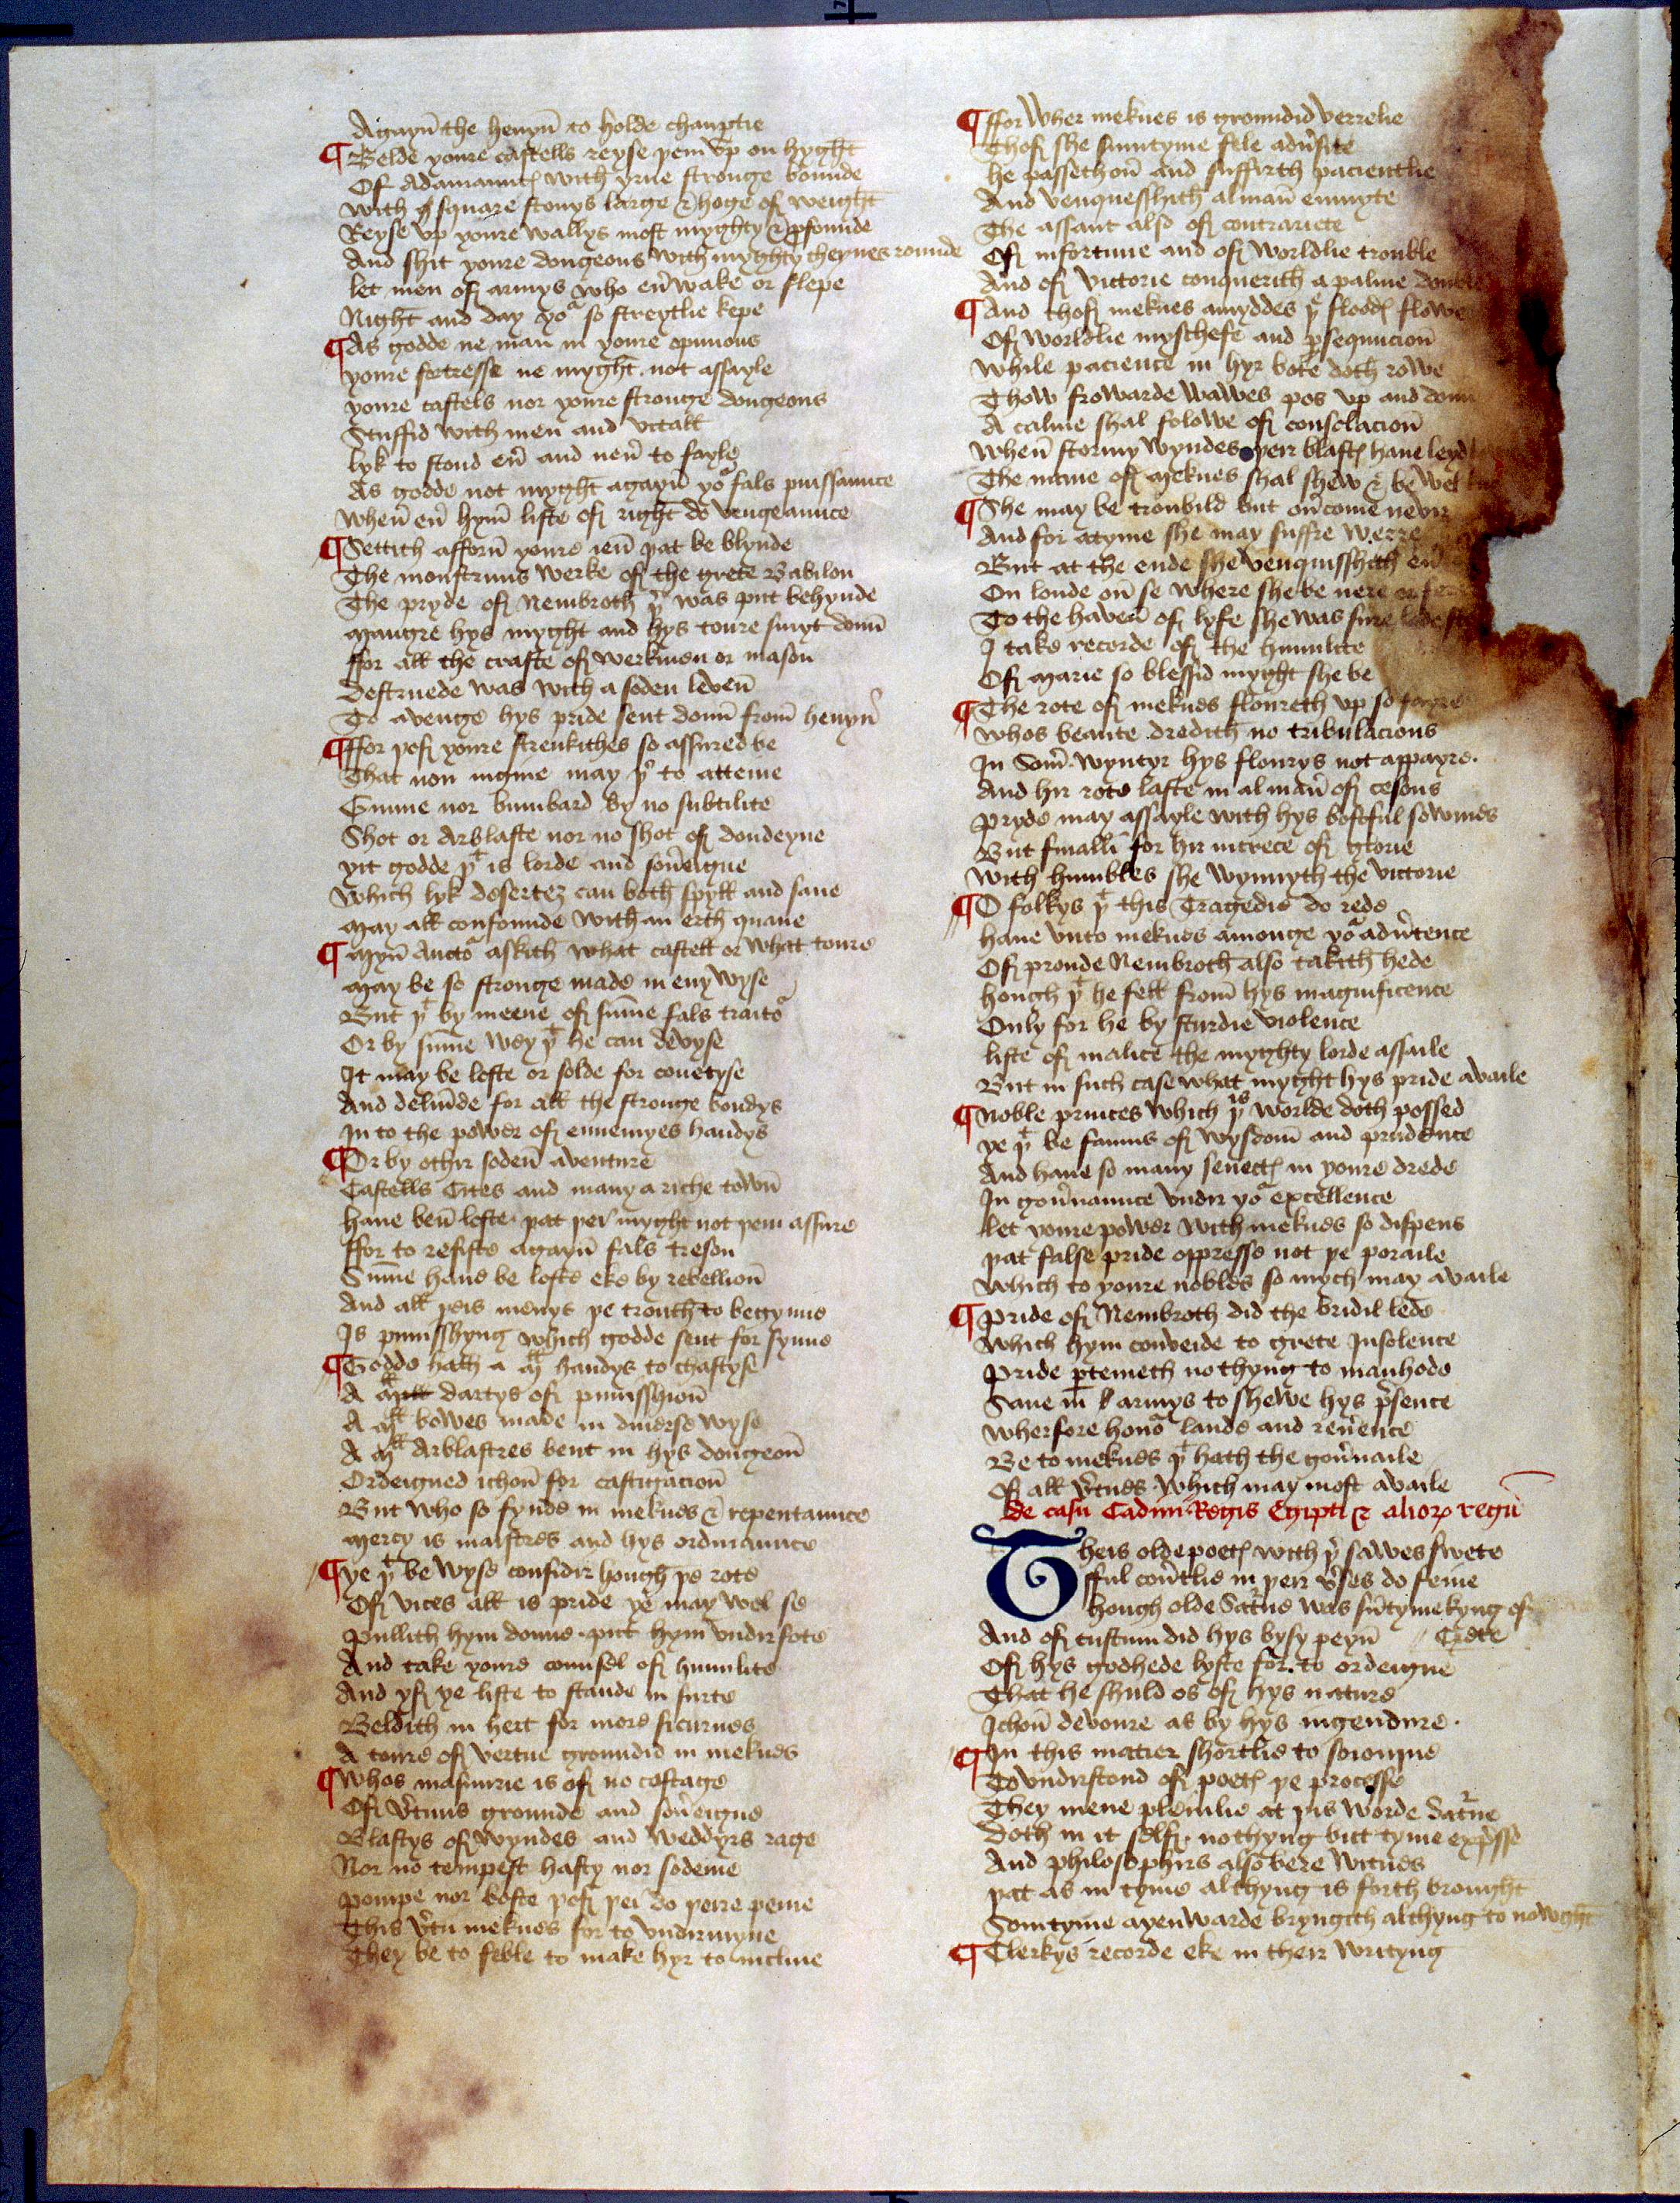 Agayn̄ the hevyn̄ to holde chaptie
¶ Belde youre castells reyse þem vp on hyght
Of Adamauntꝭ with yrne stronge bounde
With square stonys large & hoge of weight
Reyse vp youre wallys most myghty & ꝓfounde
And shit youre dongeons with myghty cheynes rounde
let men of armys who eu̾ wake or slepe
Night and day yoᵘ so streytlie kepe
¶ As godde ne man in youre opinions
youre fortresse ne myght not assayle
youre castels nor youre stronge dongeons
Stuffid with men and vitall
lyk to stond eu̾ and neu̾ to fayle
As godde not myght agayn̄ yoʳ fals puissaunce
When̄ eu̾ hym̄ liste of right do vengeaunce
¶ Settith afforn̄ youre ien̄ þat be blynde
The monstruus werke of the grete Babilon
The pryde of Nembroth þᵗ was put behynde
Maugre hys myght and hys toure smyt doun̄
ffor all the crafte of werkmen or mason
Destruede was with a soden leven̄
To avenge hys pride sent doun̄ from̄ hevyn̄
¶ ffor þof youre strenkithes so assured be
That non ingine may þᵉʳ to atteine
Gunne nor bumbard by no subtilite
Shot or Arblaste nor no shot of dondeyne
yit godde þᵗ is lorde and sou̾eigne
Which lyk desertez can both spyll and saue
May all confounde with an erth quaue
¶ Myn̄ Auctoʳ askith what castell or what toure
May be so stronge made in eny wyse
But þᵗ by meene of sum̄e fals traitoʳ
Or by sum̄e wey þᵗ he can devyse
It may be loste or solde for couetyse
And deliu̾de for all the stronge bondys
In to the power of ennemyes handys
¶ Or by othir soden̄ aventure
Castells Cites and many a riche town̄
haue ben̄ loste þat þeʳ myght not þem assure
ffor to resiste agayn̄ fals treson
Sum̄e haue be loste eke by rebellion̄
And all þeis menys þe trouth to begynne
Is punisshyng which godde sent for synne
¶ Godde hath a Mˡˡ handys to chastyse
A Mˡˡ dartys of punisshion̄
A Mˡˡ bowes made in diuerse wyse
A Mˡˡ Arblastres bent in hys dongeon̄
Ordeigned ichon̄ for castigacion̄
But who so fynde in meknes & repentaunce
Mercy is maistres and hys ordinaunce
¶ ye þᵗ be wyse considir hough þe rote
Of vices all is pride ye may wel se
Pullith hym doune put hym vndir fote
And take youre counsel of humlite
And yf ye liste to stande in surte
Beldith in hert for more sicurnes
A toure of vertue groundid in meknes
¶ Whos masunrie is of no costage
Of v̾tuus grounde and sou̾eigne
Blastys of wyndes and weddyrs rage
Nor no tempest hasty nor sodeine
Pompe nor boste þof þei do þeire peine
This v̾tu meknes for to vndirmyne
They be to feble to make hyr to incline
¶ ffor Wher meknes is groundid verrelie
Thof she sumtyme fele adu̾site
he passeth ou̾ and suffirth pacientlie
And venquesshith al man̄ enmyte
The assaut also of contrariete
Of infortune and of worldlie trouble
And of victorie conquerith a palme double
¶ And thof meknes amyddes þᵉ flodꝭ flowe
Of worldlie myschefe and ꝑsequucion̄
While pacience in hyr bote doth rowe
Thow frowarde wawes pos vp and doun
A calme shal folowe of consolacion̄
When̄ stormy wyndes þeir blastꝭ haue leyd
The name of Meknes shal shew & be wel
¶ She may be troubild but ou̾come nevir
And for a tyme she may suffre werre
But at the ende she venquisshith eu̾
On londe on̄ se where she be nere or fer
To the haven̄ of lyfe she was sure lodest
I take recorde of the humlite
Of Marie so blessid myght she be
¶ The rote of meknes floureth vp so fayre
Whos beaute dredith no tribulacions
In Som̾ wyntyr hys flourys not appayre
And hir rote laste in al man̾ of cesons
Pryde may assayle with hys bostful sownds
But finalli for hir increce of glorie
With humbles she wynnyth the victorie
¶ O folkys þᵗ this Tragedie do rede
haue vnto meknes amonge yoʳ adu̾tence
Of proude Nembroth also takith hede
hough þᵗ he fell from̄ hys magnificence
Only for he by sturdie violence
liste of malice the myghty lorde assaile
But in such case what myght hys pride availe
¶ Noble princes which þⁱˢ worlde doth possed
ye þᵗ be famus of wysdom̄ and prudence
And haue so many seuectꝭ in youre drede
In gou̾naunce vndir yoʳ excellence
let youre power with meknes so dispens
þat false pride oppresse not þe poraile
Which to youre nobles so mych may availe
¶ Pride of Nembroth did the bridil lede
Which hym conveide to grete Insolence
Pride ꝑteineth no thyng to manhode
Saue in armys to shewe hys p̾sence
Wherfore honoʳ laude and reu̾ence
Be to meknes þᵗ hath the gou̾naile
Of all v̾tues which may most availe
De casu Cadmi Regis Egipti & alioꝝ regū
Theis olde poetꝭ with þʳ sawes swete
fful cou̾tlie in þeir v̾ses do feine
hough olde Sat̾ne was sūtyme kyng of
And of custum did hys bysy peyn̄ // Crete
Of hys godhede lyste for to ordeigne
That he shuld os of hys nature
Ichon̄ devoure as by hys ingendure
¶ In this matier shortlie to soiorne
To vndirstond of poetꝭ þe processe
They mene pleinlie at þis worde Sat̾ne
Doth in it selfe no thyng bitt tyme exp̾sse
And philosophirs also bere witnes
þat as in tyme al thyng is forth brought
Somtyme ayenwarde bryngith althyng to nowght
¶ Clerkys recorde eke in their writyng